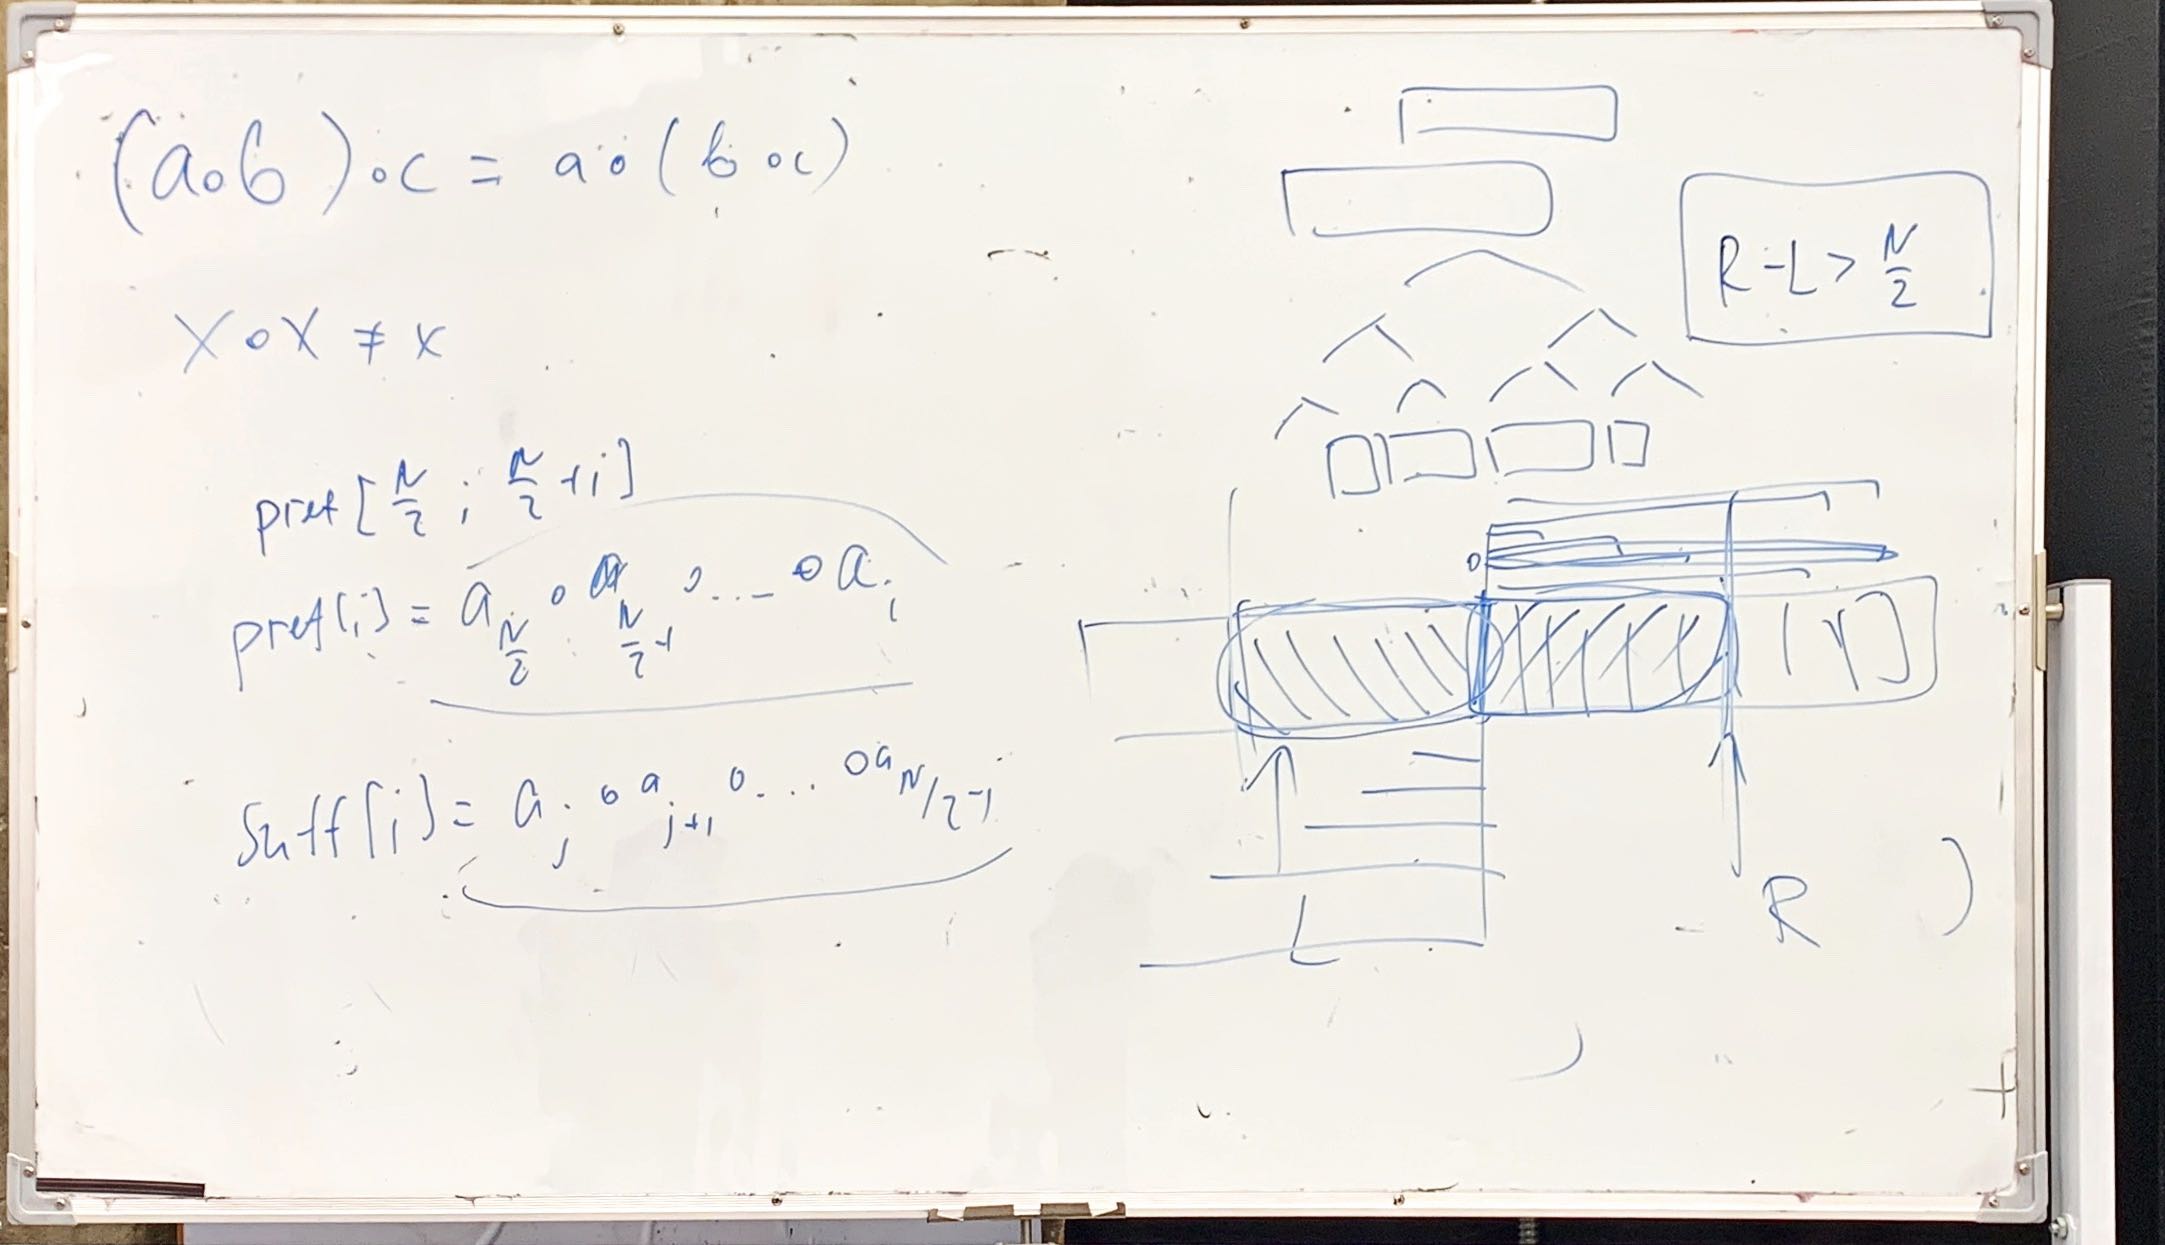 (a∘b)∘c = a∘(b∘c)
X∘X ≠ X
pref[N/2 ; N/2+i]
pref[i] = a_{N/2} ∘ a_{N/2+1} ∘ ... ∘ a_i
Suff[i] = a_j ∘ a_{j+1} ∘ ... ∘ a_{N/2-1}
R-L > N/2
0
L
R